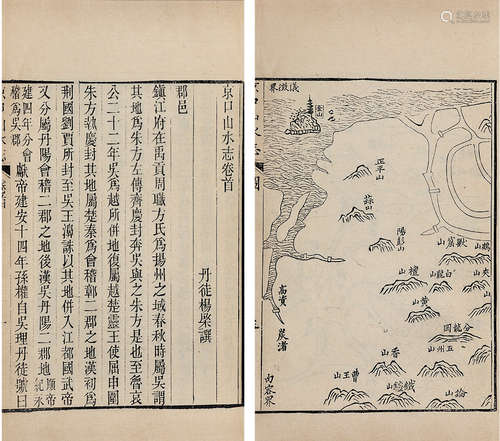 京口山水志卷首
丹徒楊棨譔
郡邑
鎮江府在禹貢周職方氏爲揚州之域春秋時屬吳謂
其地爲朱方左傳齊慶封奔吳與之朱方是也至魯哀
公二十二年吳爲越所併地復屬越楚靈王使屈申圍
朱方執慶封其地屬楚秦爲會稽鄣二郡之地漢初爲
荆國劉賈所封至吳王濞誅以其地併入江都國武帝
又分屬丹陽會稽二郡之地後漢吳丹陽二郡地
獻帝建安十四年孫權自吳理丹徒號曰
京口山水志
儀徵界
金山
正平山
蒜山
陽彭山
獸窟山
磨山
白龍山
夾山
黃山
分龍岡
五州山
高資
炭渚
香山
曹王山
句容界